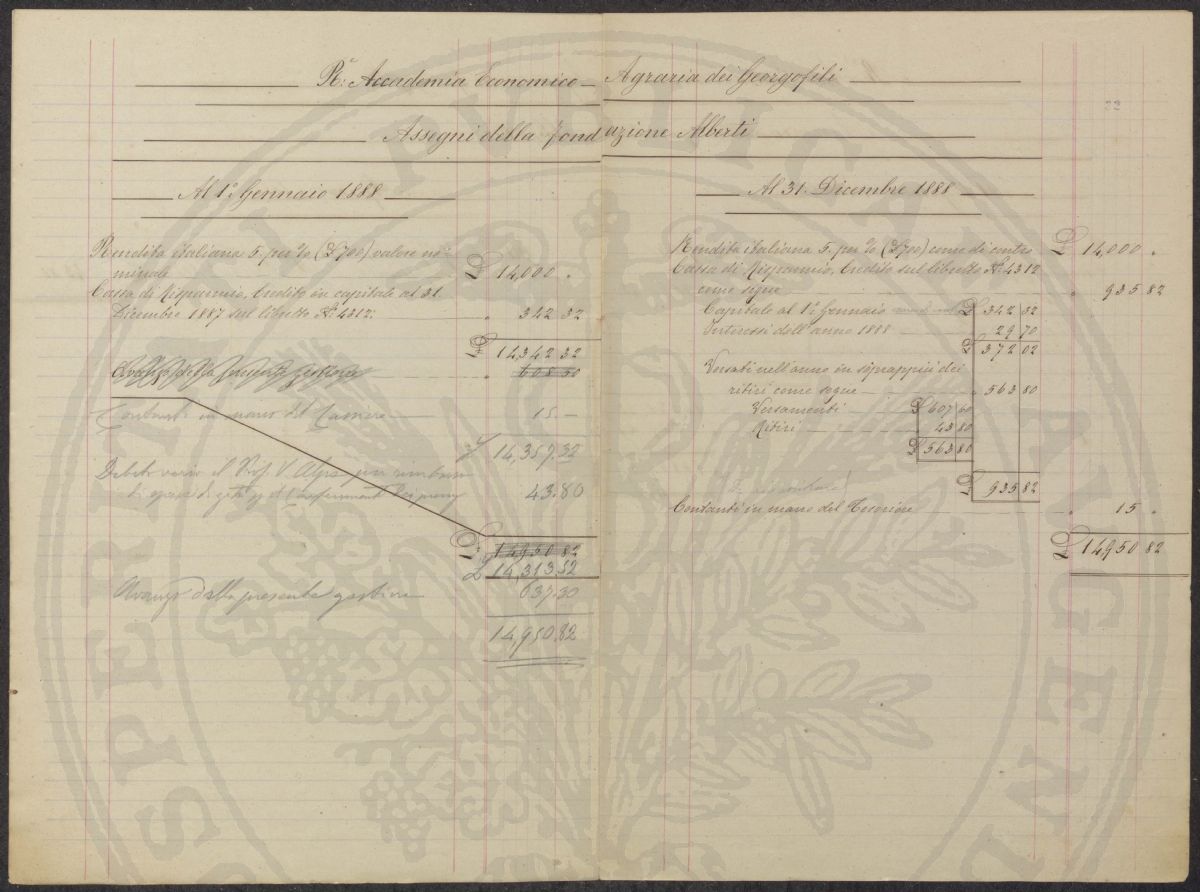 Rª: Accademia Economico - Agraria dei Georgofili
Assegni della fondazione Alberti
Al 1º Gennaio 1888
Rendita italiana 5. per % (£ 700) valore no=
minale £ 14,000 "
Cassa di Risparmio, Credito in capitale al 31.
Dicembre 1887 sul libretto Nº 4312. " 342 32
£ 14342 32
Avanzo della presente gestione " 608 50
Contanti in mano del Cassiere 15.—
14,357.32
Debito verso il Prof. V.
43.80
£ 14950 82
£ 14,313.52
Avanzo della presente gestione 637.30
14,950.82
Al 31. Dicembre 1888
22
Rendita italiana 5. per % (£ 700) come di contro £ 14,000 "
Cassa di Risparmio, Credito sul libretto Nº 4312
come segue " 935 82
Capitale al 1º Gennaio £ 342 32
Interessi dell'anno 1888 " 29 70
£ 372 02
Versati nell'anno in soprappiù dei
ritiri come segue " 563 80
Versamenti £ 607 60
Ritiri 43 80
£ 563 80
£ 935 82
Contanti in mano del Tesoriere " 15 "
£ 14950 82